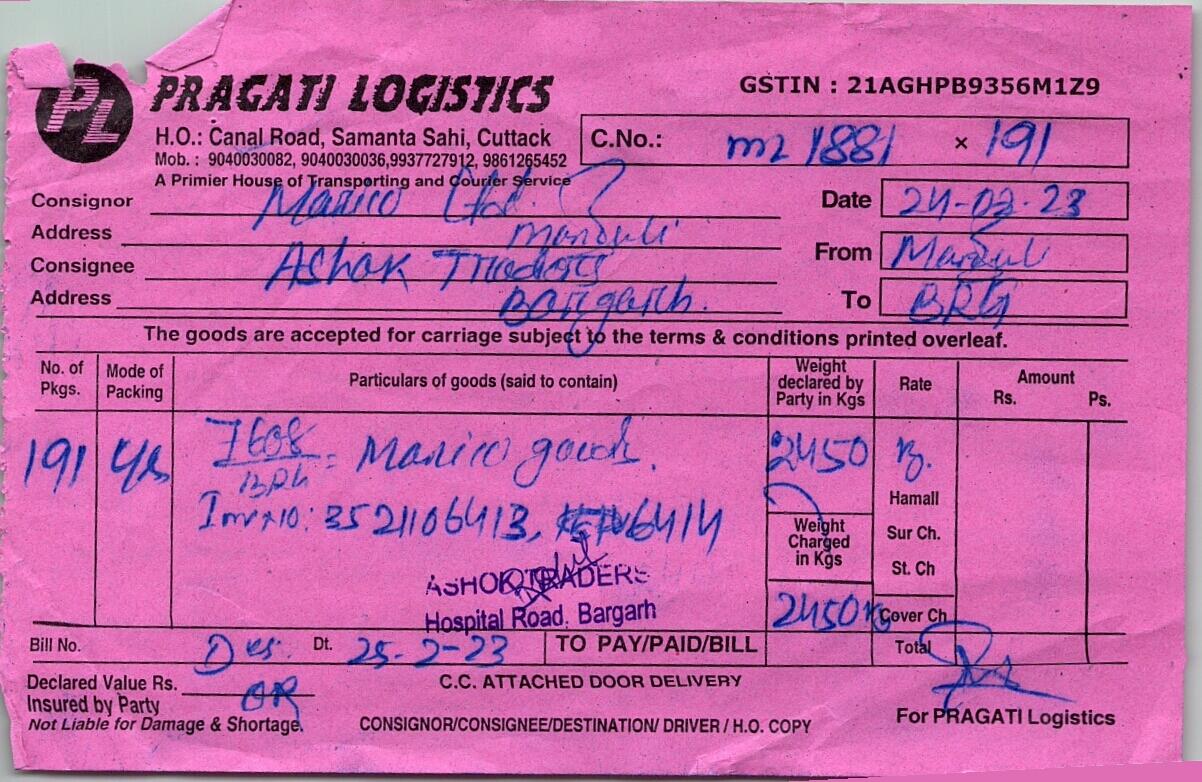 PL
PRAGATI LOGISTICS
GSTIN : 21AGHPB9356M1Z9
H.O.: Canal Road, Samanta Sahi, Cuttack
Mob. : 9040030082, 9040030036,9937727912, 9861265452
A Primier House of Transporting and Courier Service
C.No.: m2 1881 × 191
Consignor Marico Ltd.
Date 24-02-23
Address Manguli
From Manguli
Consignee Ashok Traders
Address Bargarh.
To BRG
The goods are accepted for carriage subject to the terms & conditions printed overleaf.
No. of Pkgs. Mode of Packing Particulars of goods (said to contain) Weight declared by Party in Kgs Rate Amount Rs. Ps.
191 7608 = Marico goods. 2450
Inv no: 3521106413, 6414
Hamall
Weight Charged in Kgs
Sur Ch.
St. Ch
ASHOK TRADERS
Hospital Road, Bargarh
2450 Kg
Cover Ch
Bill No. Dt. 25-2-23 TO PAY/PAID/BILL Total
Declared Value Rs.
C.C. ATTACHED DOOR DELIVERY
Insured by Party OR
Not Liable for Damage & Shortage.
CONSIGNOR/CONSIGNEE/DESTINATION/ DRIVER / H.O. COPY
For PRAGATI Logistics